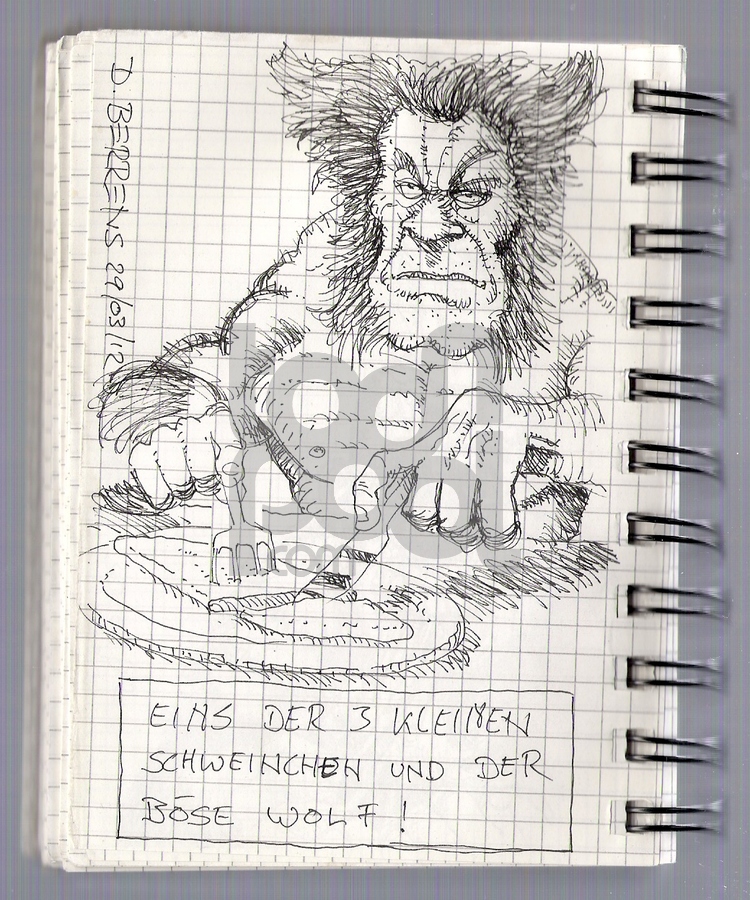 D. BERRENS 29/03/12
toon
pool
.com
EINS DER 3 KLEINEN
SCHWEINCHEN UND DER
BÖSE WOLF!